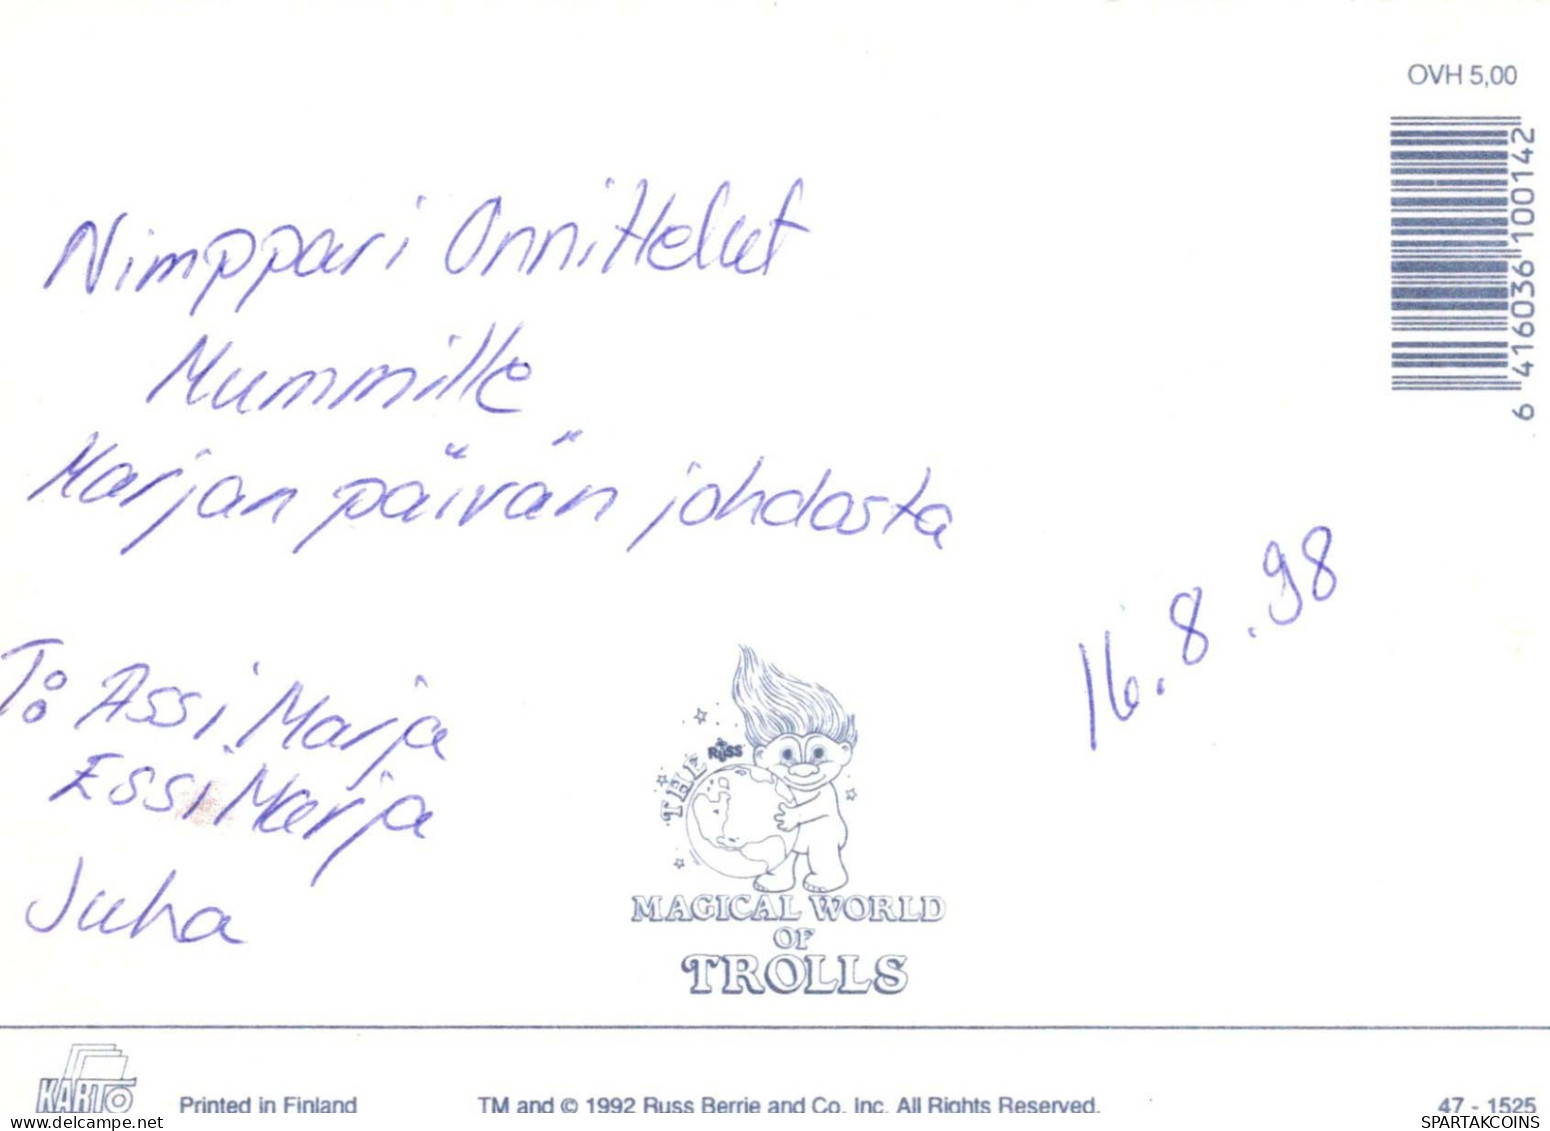 OVH 5,00
6 416036 100142
Nimppari Onnittelut
Mummille
Marjan päivän johdosta
16.8.98
To: Assi Marja
Essi Marja
Juha
THE RUSS
MAGICAL WORLD
OF
TROLLS
KARTO
Printed in Finland
TM and © 1992 Russ Berrie and Co. Inc. All Rights Reserved.
47 - 1525
delcampe.net
SPARTAKCOINS